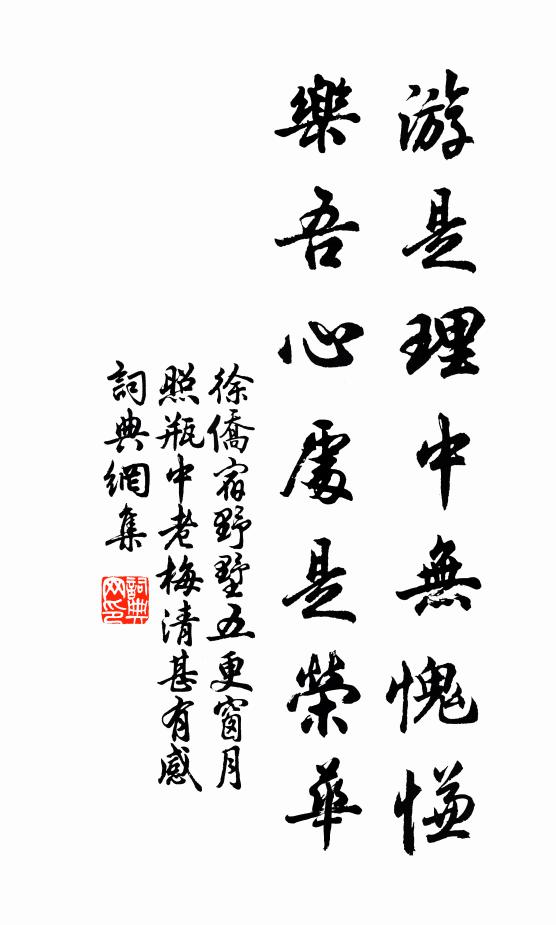 游是理中無愧慊
樂吾心處是榮華
徐僑宿野墅五更窗月
照瓶中老梅清甚有感
詞典網集
詞典
网印